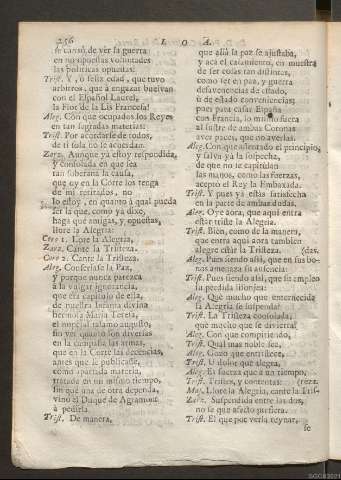 256 L O A.
se cansó de ver la guerra
en no opuestas voluntades
las politicas opuestas:
Trist. Y, ò feliz edad, que tuvo
arbitros, que à engazar buelvan
con el Español Laurel,
la Flor de Lis Francesa!
Aleg. Con que ocupados los Reyes
en tan sagradas materias:
Trist. Por acordarse de todos,
de sì solo no se acuerdan.
Zarz. Aunque yà estoy respondida,
y consolada en que sea
tan soberana la causa,
que oy en la Corte los tenga
de mi retirados, no
lo estoy, en quanto à qual pueda
ser la que, como yà dixe,
haga que amigas, y opuestas,
llore la Alegria:
Coro 1. Lore la Alegria,
Zarz. Cante la Tristeza.
Coro 2. Cante la Tristeza.
Aleg. Conferiase la Paz,
y porque nunca parezca
à la vulgar ignorancia,
que era capitulo de ella,
de nuestra Infanta divina
hermosa Maria Teresa,
el nupcial talamo augusto,
sin ver quanto son diversas
en la campaña las armas,
que en la Corte las decencias,
antes que se publicasse,
como apartada materia,
tratada en un mismo tiempo,
sin que una de otra dependa,
vino el Duque de Agramont
à pedirla.
Trist. De manera,
que allà la paz se ajustaba,
y acà el casamiento, en muestra
de ser cosas tan distintas,
como ser en paz, y guerra
desavenencias de estado,
ù de estado conveniencias;
pues para casar España
con Francia, lo mismo fuera
al lustre de ambas Coronas
aver paces, que no averlas.
Aleg. Con que assentado el principio,
y salva yà la sospecha,
de que no se capitulan
las manos, como las fuerzas,
aceptò el Rey la Embaxada.
Trist. Y pues yà estàs satisfecha
en la parte de ambas dudas,
Aleg. Oye aora, que aqui entra
estàr triste la Alegria.
Trist. Bien, como de la manera,
que entra aqui aora tambien
alegre estàr la Tristeza.
Aleg. Pues siendo assi, que en sus bodas
nos amenaza su ausencia:
Trist. Pues siendo assi, que su empleo
su perdida lisonjea:
Aleg. Què mucho que enternecida
la Alegria se suspenda?
Trist. La Tristeza consolada,
què mucho que se divierta?
Aleg. Con que compitiendo,
Trist. Qual mas noble sea,
Aleg. Gozo que entristece,
Trist. U dolor que alegra,
Aleg. Es fuerza que à un tiempo,
Trist. Tristes, y contentas:
Mus. Llore la Alegria, cante la Tris-
Zarz. Suspendida entre las dos,
no sè que afecto prefiera.
Trist. El que por verla reynar,
se